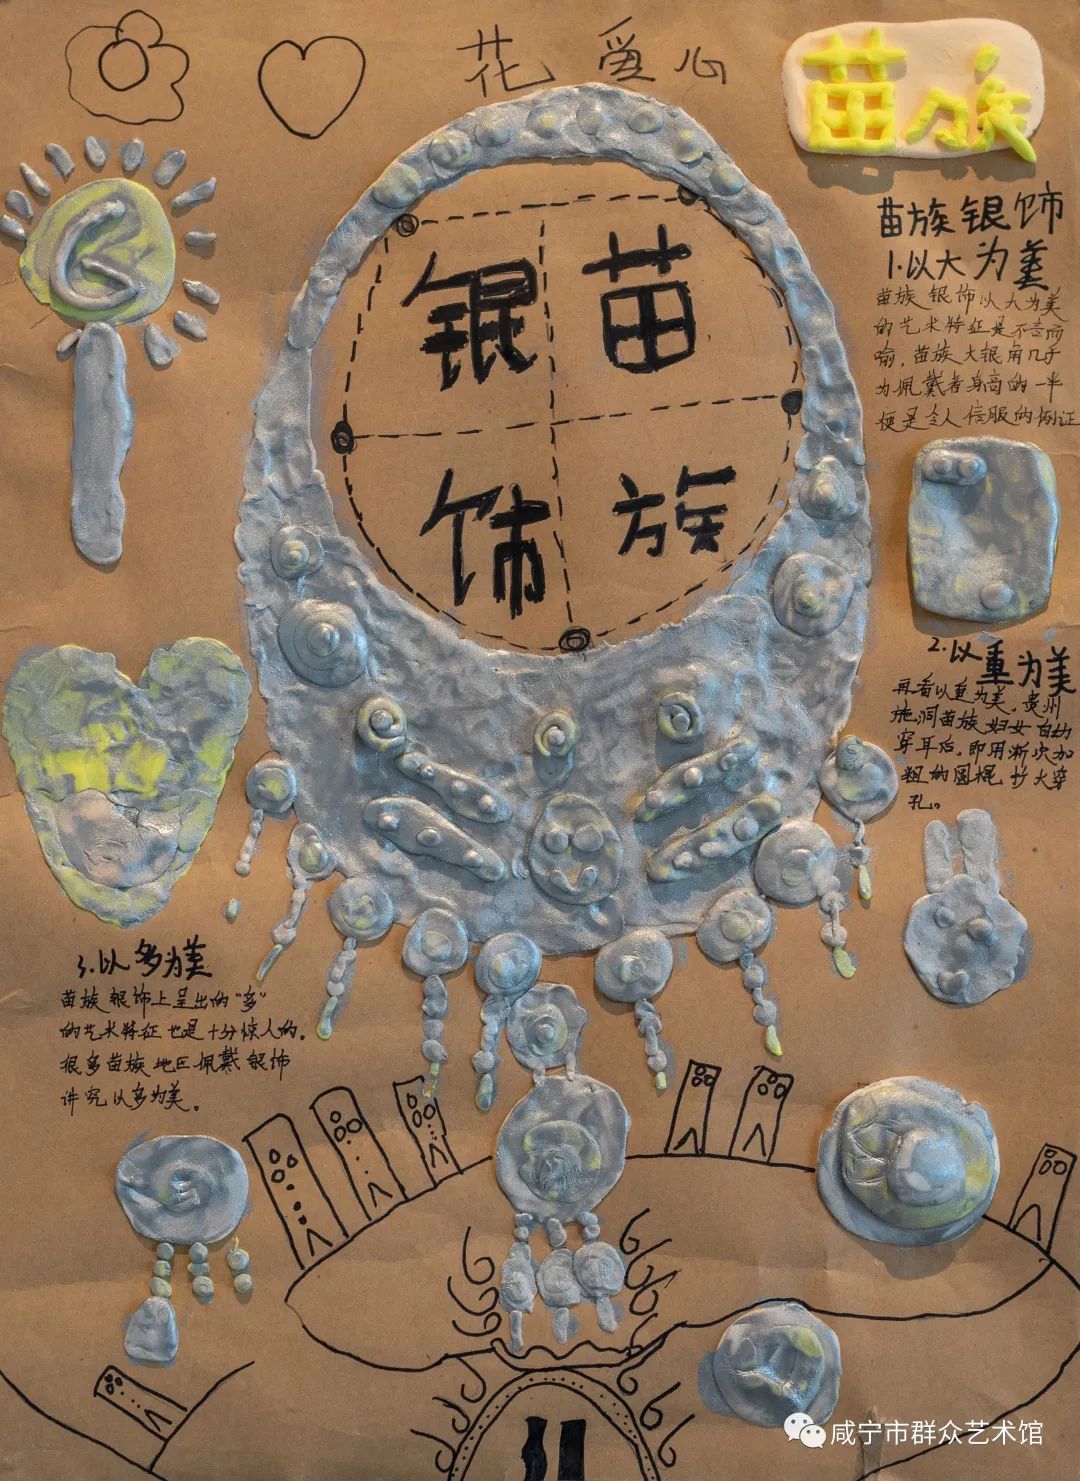 花 爱 心
苗族
苗族银饰
苗族
银饰
1.以大为美
苗族银饰以大为美
的艺术特征是不言而
喻,苗族大银角几乎
为佩戴者身高的一半
便是令人信服的例证
2.以重为美
再看以重为美,贵州
施洞苗族妇女自幼
穿耳后,即用渐次加
粗的圆棍扩大穿
孔。
3.以多为美
苗族银饰上呈出的“多”
的艺术特征也是十分惊人的。
很多苗族地区佩戴银饰
讲究以多为美。
咸宁市群众艺术馆